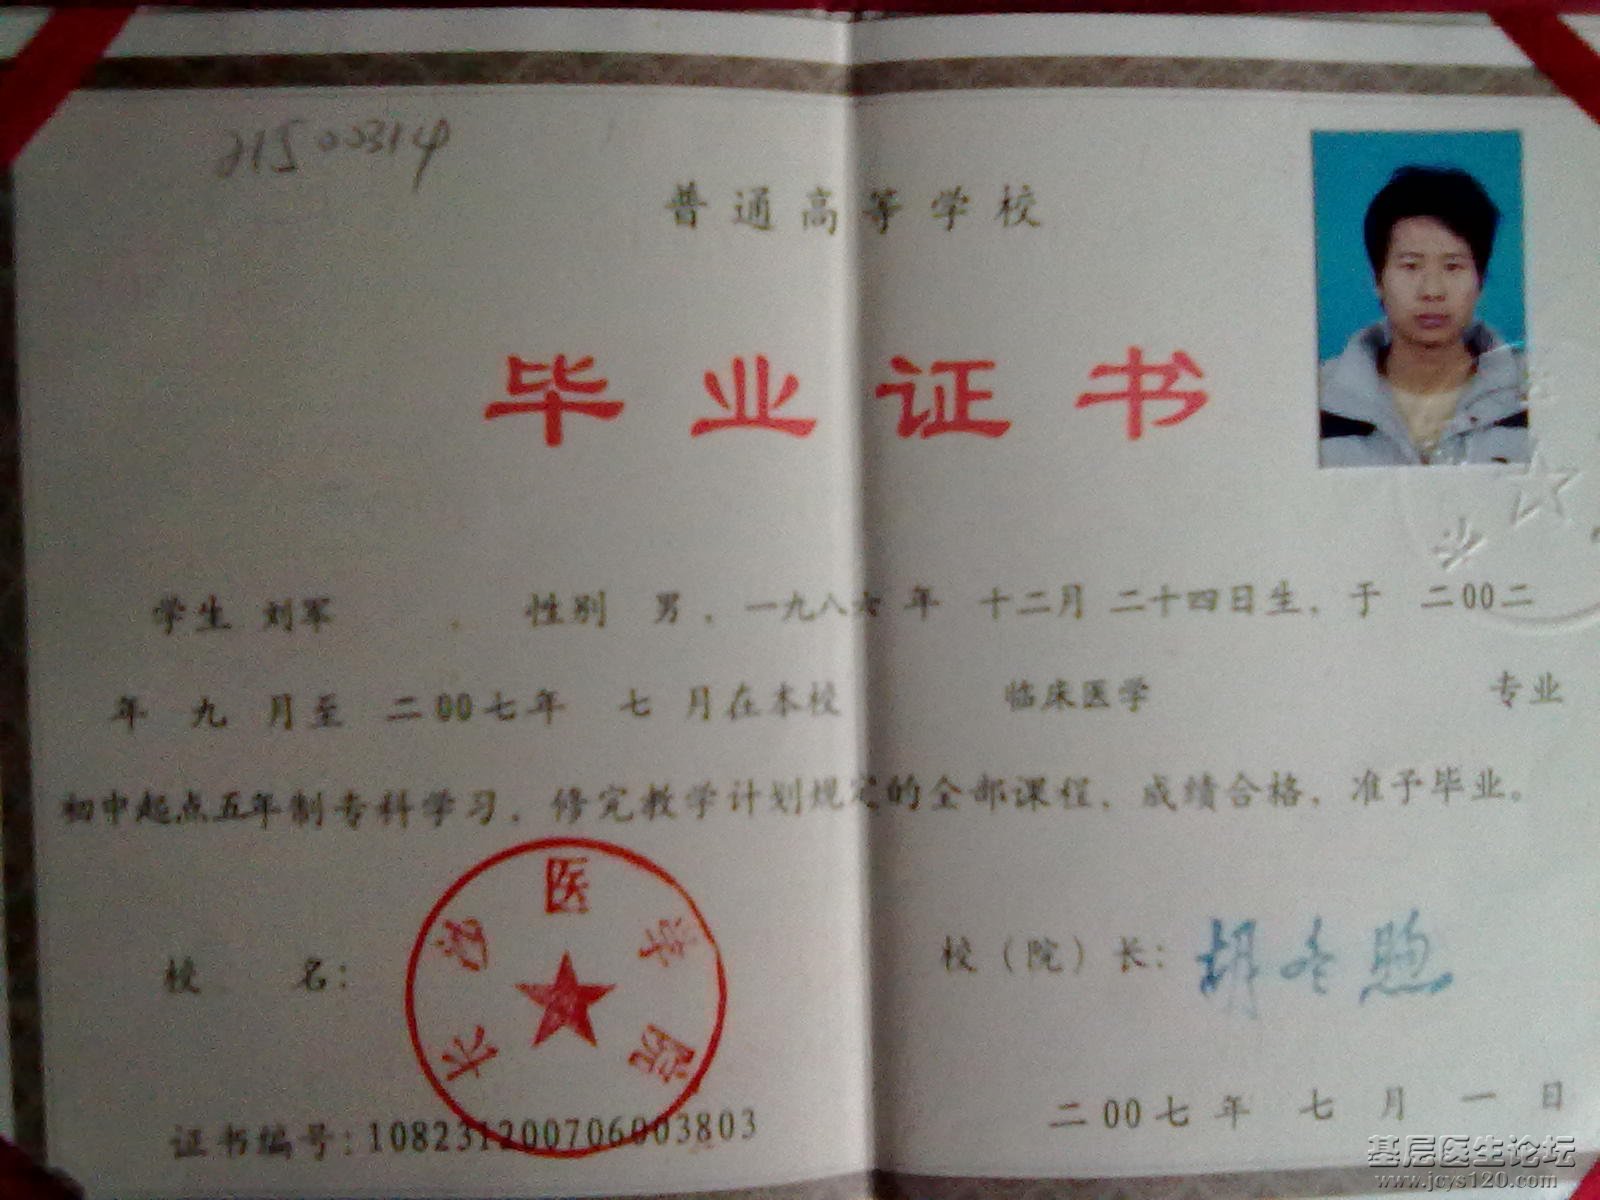 21500314
普通高等学校
毕业证书
学生 刘军 , 性别 男 , 一九八六 年 十二月 二十四日生, 于 二00二
年 九 月至 二00七年 七 月在本校 临床医学 专业
初中起点五年制专科学习, 修完教学计划规定的全部课程, 成绩合格, 准予毕业。
长沙医学院
校 名: 校(院)长: 胡冬煦
证书编号: 108231200706003803
二00七年 七 月 一 日
基层医生论坛
www.jcys120.com